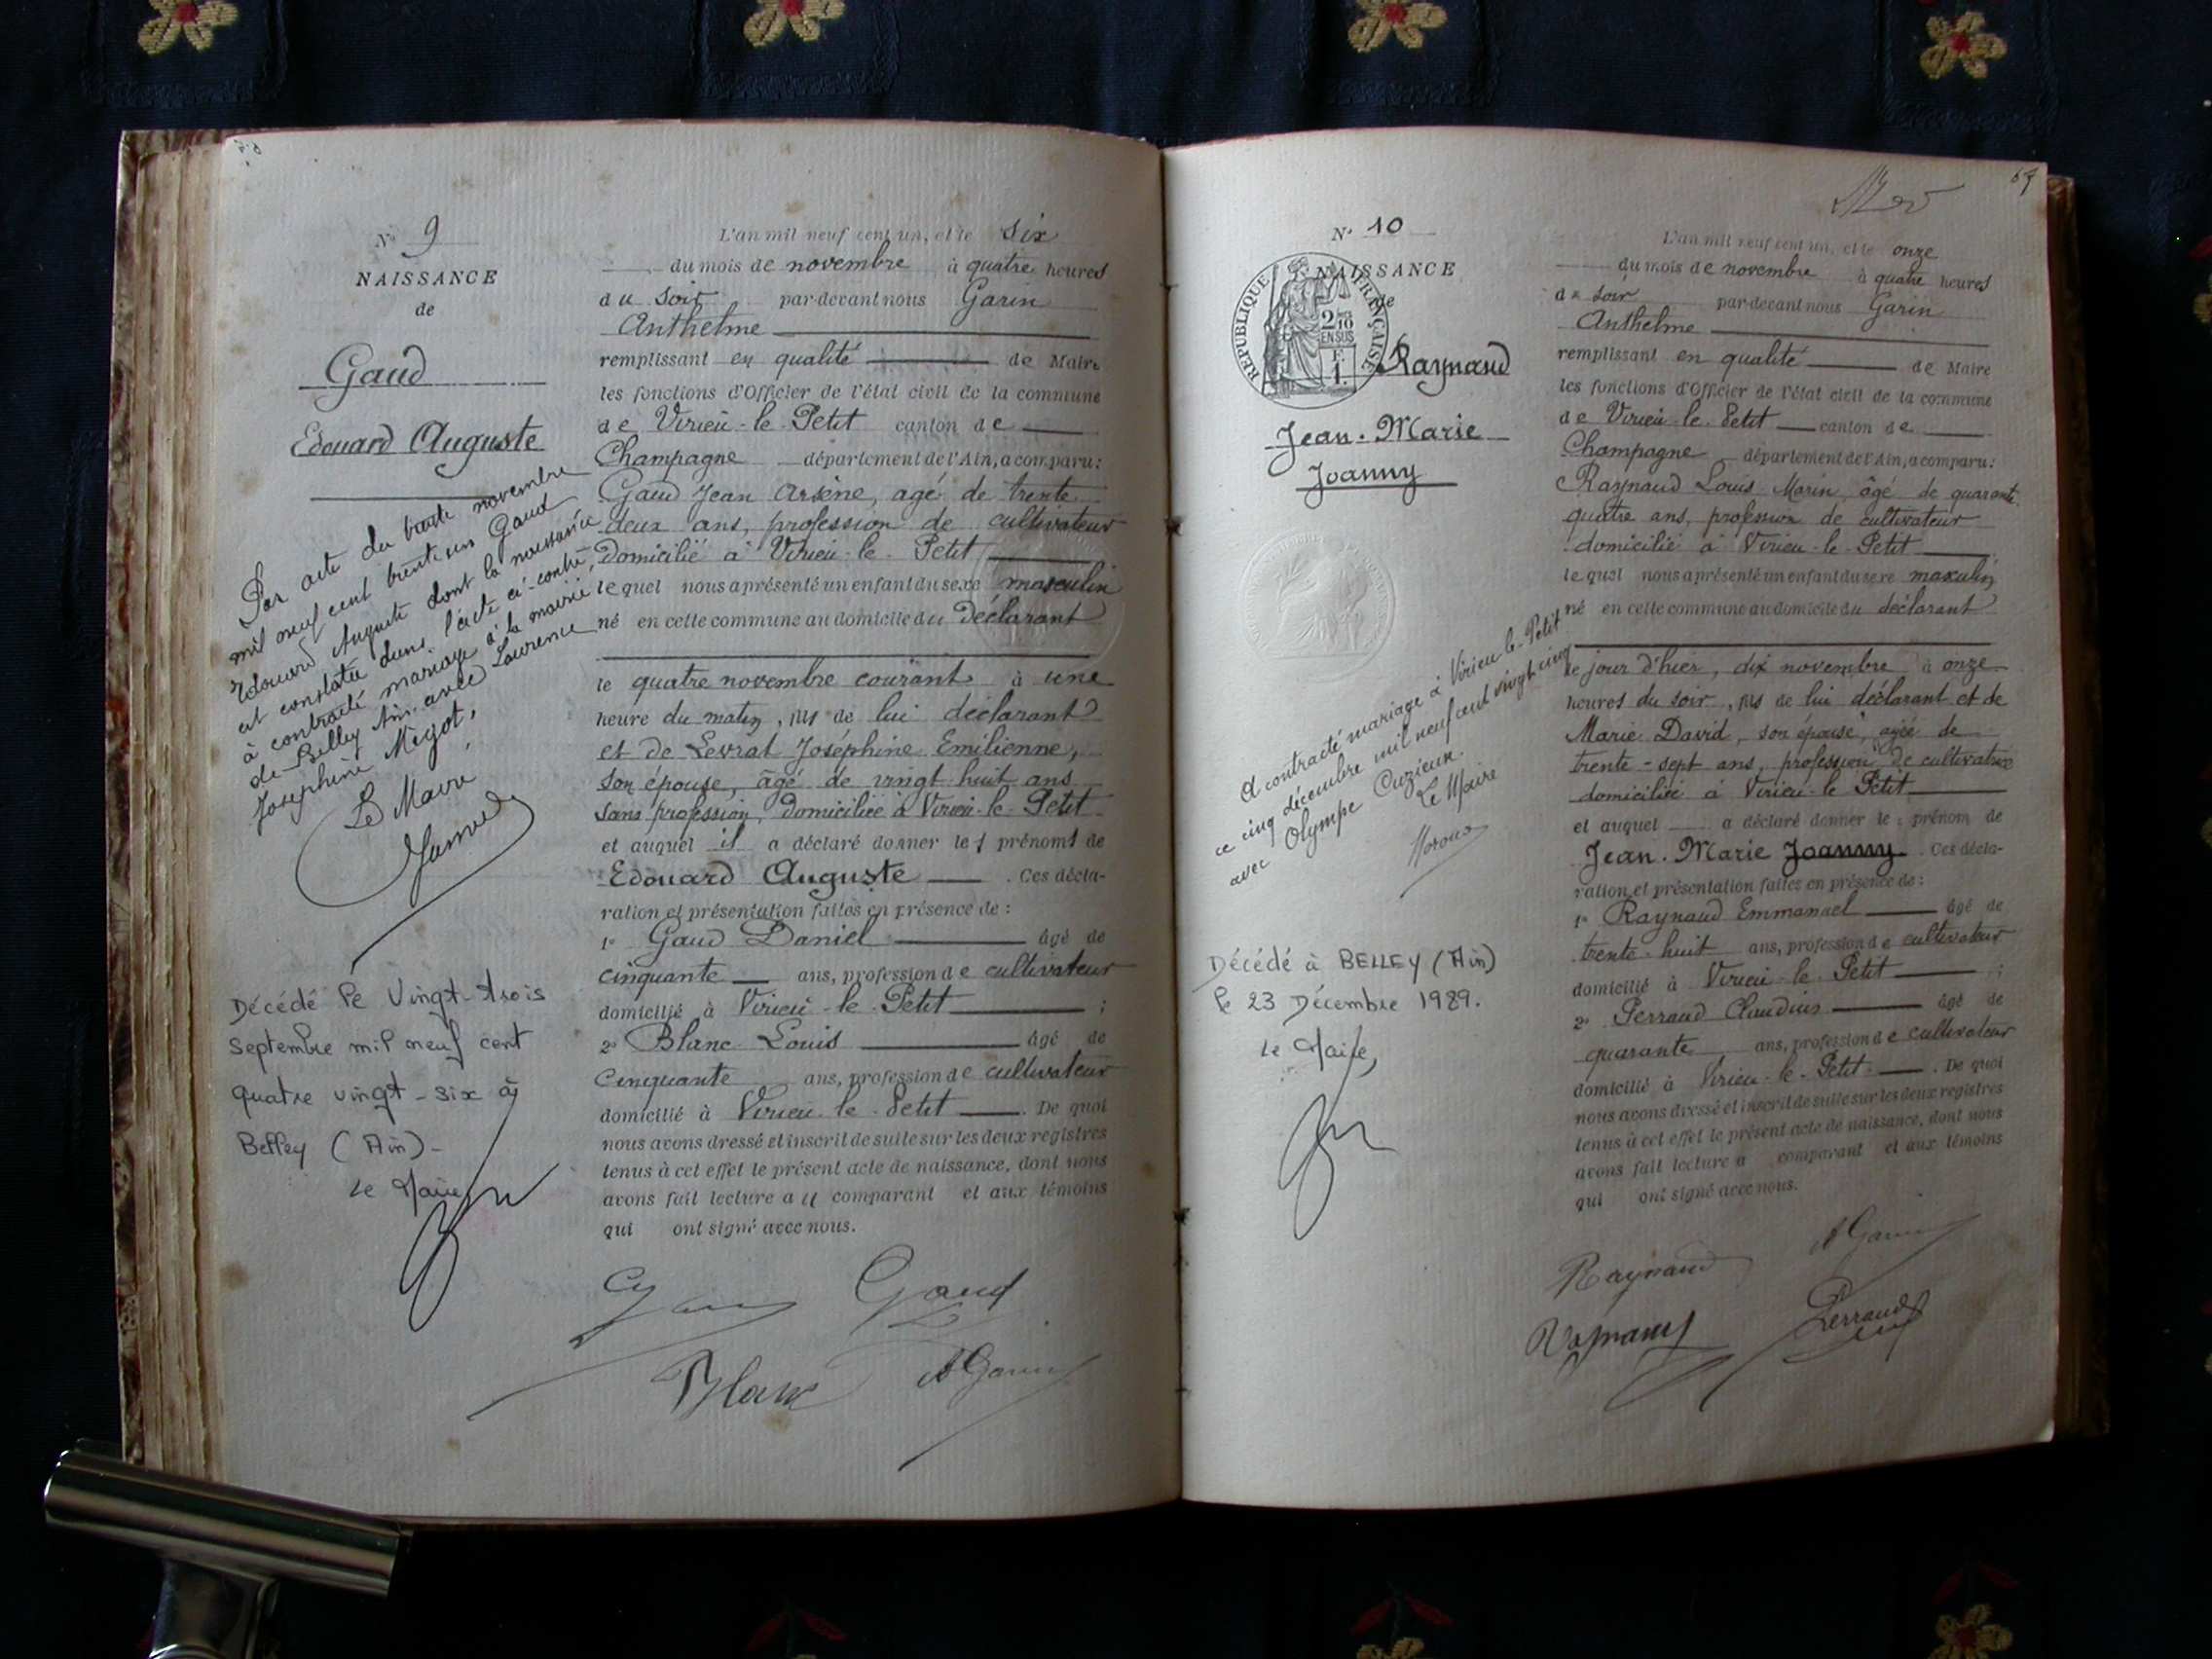 N° 9
NAISSANCE
de
Gaud
Edouard Auguste
Par acte du trente novembre
mil neuf cent trente six Gaud
Edouard Auguste dont la naissance
est constatée dans l'acte ci-contre,
à contracté mariage à la mairie
de Belley Ain avec Laurence
Joséphine Migot,
Le Maire
Décédé le Vingt-trois
Septembre mil neuf cent
quatre vingt-six à
Belley (Ain)-
Le Maire
L'an mil neuf cent un, et le six
du mois de novembre à quatre heures
du soir par-devant nous Garin
Anthelme
remplissant en qualité de Maire
les fonctions d'Officier de l'état civil de la commune
de Virieu-le-Petit canton de
Champagne département de l'Ain, a comparu:
Gaud Jean Arsène, agé de trente
deux ans, profession de cultivateur
domicilié à Virieu-le-Petit
lequel nous a présenté un enfant du sexe masculin
né en cette commune au domicile du déclarant
le quatre novembre courant à une
heure du matin, fils de lui déclarant
et de Levrat Joséphine Emilienne,
son épouse, âgé de vingt huit ans
sans profession, domiciliée à Virieu-le-Petit
et auquel il a déclaré donner les prénoms de
Edouard Auguste . Ces décla-
ration et présentation faites en présence de:
1° Gaud Daniel âgé de
cinquante ans, profession de cultivateur
domicilié à Virieu-le-Petit ;
2° Blanc Louis âgé de
Cinquante ans, profession de cultivateur
domicilié à Virieu-le-Petit . De quoi
nous avons dressé et inscrit de suite sur les deux registres
tenus à cet effet le présent acte de naissance, dont nous
avons fait lecture au comparant et aux témoins
qui ont signé avec nous.
Gaud
Blanc AGarin
N° 10
NAISSANCE
de
REPUBLIQUE FRANÇAISE
2/10
EN SUS
F.
1.
Raynaud
Jean-Marie
Joanny
A contracté mariage à Virieu-le-Petit
ce cinq décembre mil neuf cent vingt cinq
avec Olympe Cuzieux.
Le Maire
Décédé à BELLEY (Ain)
le 23 Décembre 1989.
Le Maire,
L'an mil neuf cent un, et le onze
du mois de novembre à quatre heures
du soir par-devant nous Garin
Anthelme
remplissant en qualité de Maire
les fonctions d'Officier de l'état civil de la commune
de Virieu-le-Petit canton de
Champagne département de l'Ain, a comparu:
Raynaud Louis Marin, âgé de quarante
quatre ans, profession de cultivateur
domicilié à Virieu-le-Petit
lequel nous a présenté un enfant du sexe masculin
né en cette commune au domicile du déclarant
le jour d'hier, dix novembre à onze
heures du soir, fils de lui déclarant et de
Marie David, son épouse, agée de
trente-sept ans, profession de cultivatrice
domiciliée à Virieu-le-Petit
et auquel a déclaré donner le prénom de
Jean-Marie Joanny. Ces décla-
ration et présentation faites en présence de:
1° Raynaud Emmanuel âgé de
trente-huit ans, profession de cultivateur
domicilié à Virieu-le-Petit ;
2° Perraud Claudius âgé de
quarante ans, profession de cultivateur
domicilié à Virieu-le-Petit . De quoi
nous avons dressé et inscrit de suite sur les deux registres
tenus à cet effet le présent acte de naissance, dont nous
avons fait lecture a comparant et aux témoins
qui ont signé avec nous.
Raynaud AGarin
Raynaud Perraud